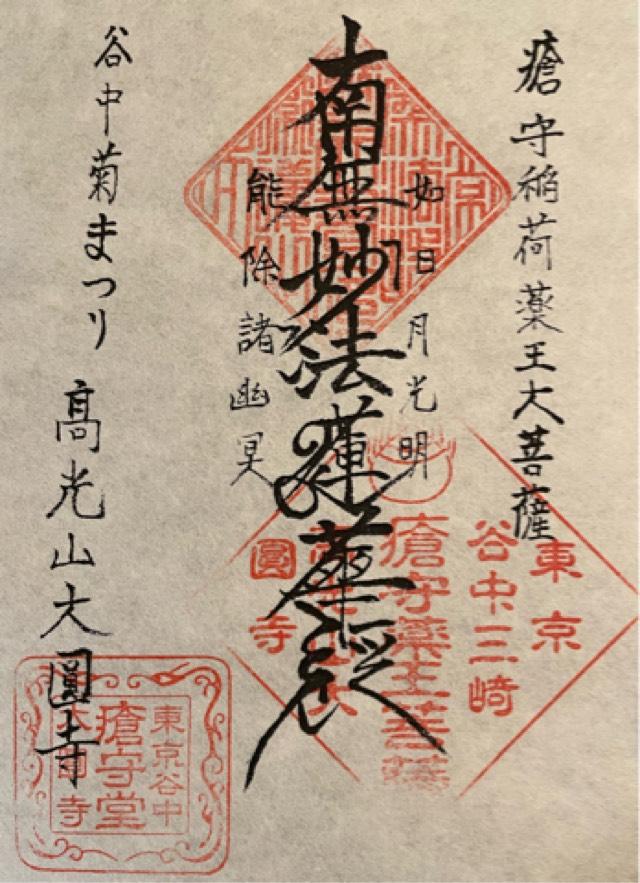 瘡守稲荷薬王大菩薩
如日月光明
南無妙法蓮華経
能除諸幽冥
谷中菊まつり
高光山大圓寺
東京
谷中三崎
瘡守薬王菩薩
圓寺
東京谷中
瘡守堂
大圓寺